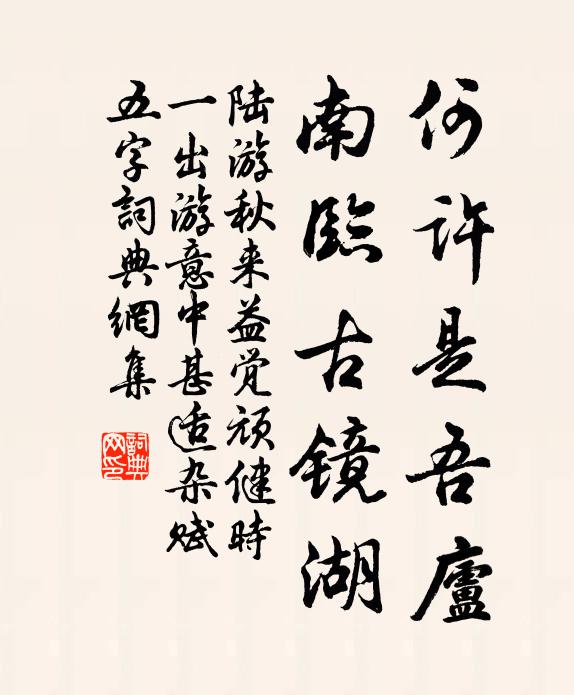 何许是吾廬
南臨古镜湖
陆游秋来益觉顽健时
一出游意中甚适杂赋
五字詞典網集
詞典網印